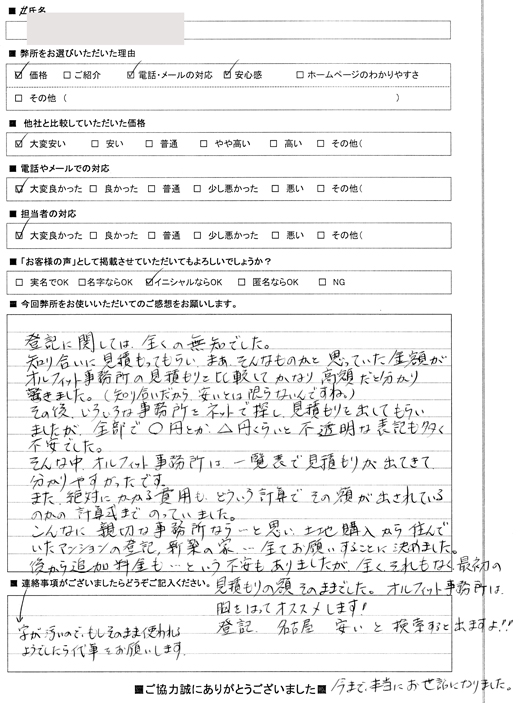 ■ 氏名
■ 弊所をお選びいただいた理由
☑ 価格 □ ご紹介 ☑ 電話・メールの対応 ☑ 安心感 □ ホームページのわかりやすさ
□ その他 ( )
■ 他社と比較していただいた価格
☑ 大変安い □ 安い □ 普通 □ やや高い □ 高い □ その他(
■ 電話やメールでの対応
☑ 大変良かった □ 良かった □ 普通 □ 少し悪かった □ 悪い □ その他(
■ 担当者の対応
☑ 大変良かった □ 良かった □ 普通 □ 少し悪かった □ 悪い □ その他(
■ 「お客様の声」として掲載させていただいてもよろしいでしょうか？
□ 実名でOK □ 名字ならOK ☑ イニシャルならOK □ 匿名ならOK □ NG
■ 今回弊所をお使いいただいてのご感想をお願いします。
登記に関しては、全くの無知でした。
知り合いに見積もってもらい、まぁ、そんなものかと思っていた金額が
オルフィット事務所の見積もりと比較してかなり高額だと分かり
驚きました。(知り合いだから安いとは限らないんですね。)
その後、いろいろな事務所をネットで探し、見積もりを出してもらい
ましたが、全部で〇円とか、△円くらいと不透明な表記も多く
不安でした。
そんな中、オルフィット事務所は、一覧表で見積もりが出てきて
分かりやすかったです。
また、絶対にかかる費用も、どういう計算でその額が出されている
のかの計算式までのっていました。
こんなに親切な事務所なら…と思い、土地購入から住んで
いたマンションの登記、新築の家…全てお願いすることに決めました。
後から追加料金も…という不安もありましたが、全くそれもなく最初の
見積もりの額そのままでした。オルフィット事務所は、
胸をはってオススメします!
登記、名古屋 安い と検索すると出ますよ!!
■ 連絡事項がございましたらどうぞご記入ください。
字が汚いので、もしそのまま使われる
ようでしたら代筆をお願いします。
■ご協力誠にありがとうございました■
今まで、本当にお世話になりました。